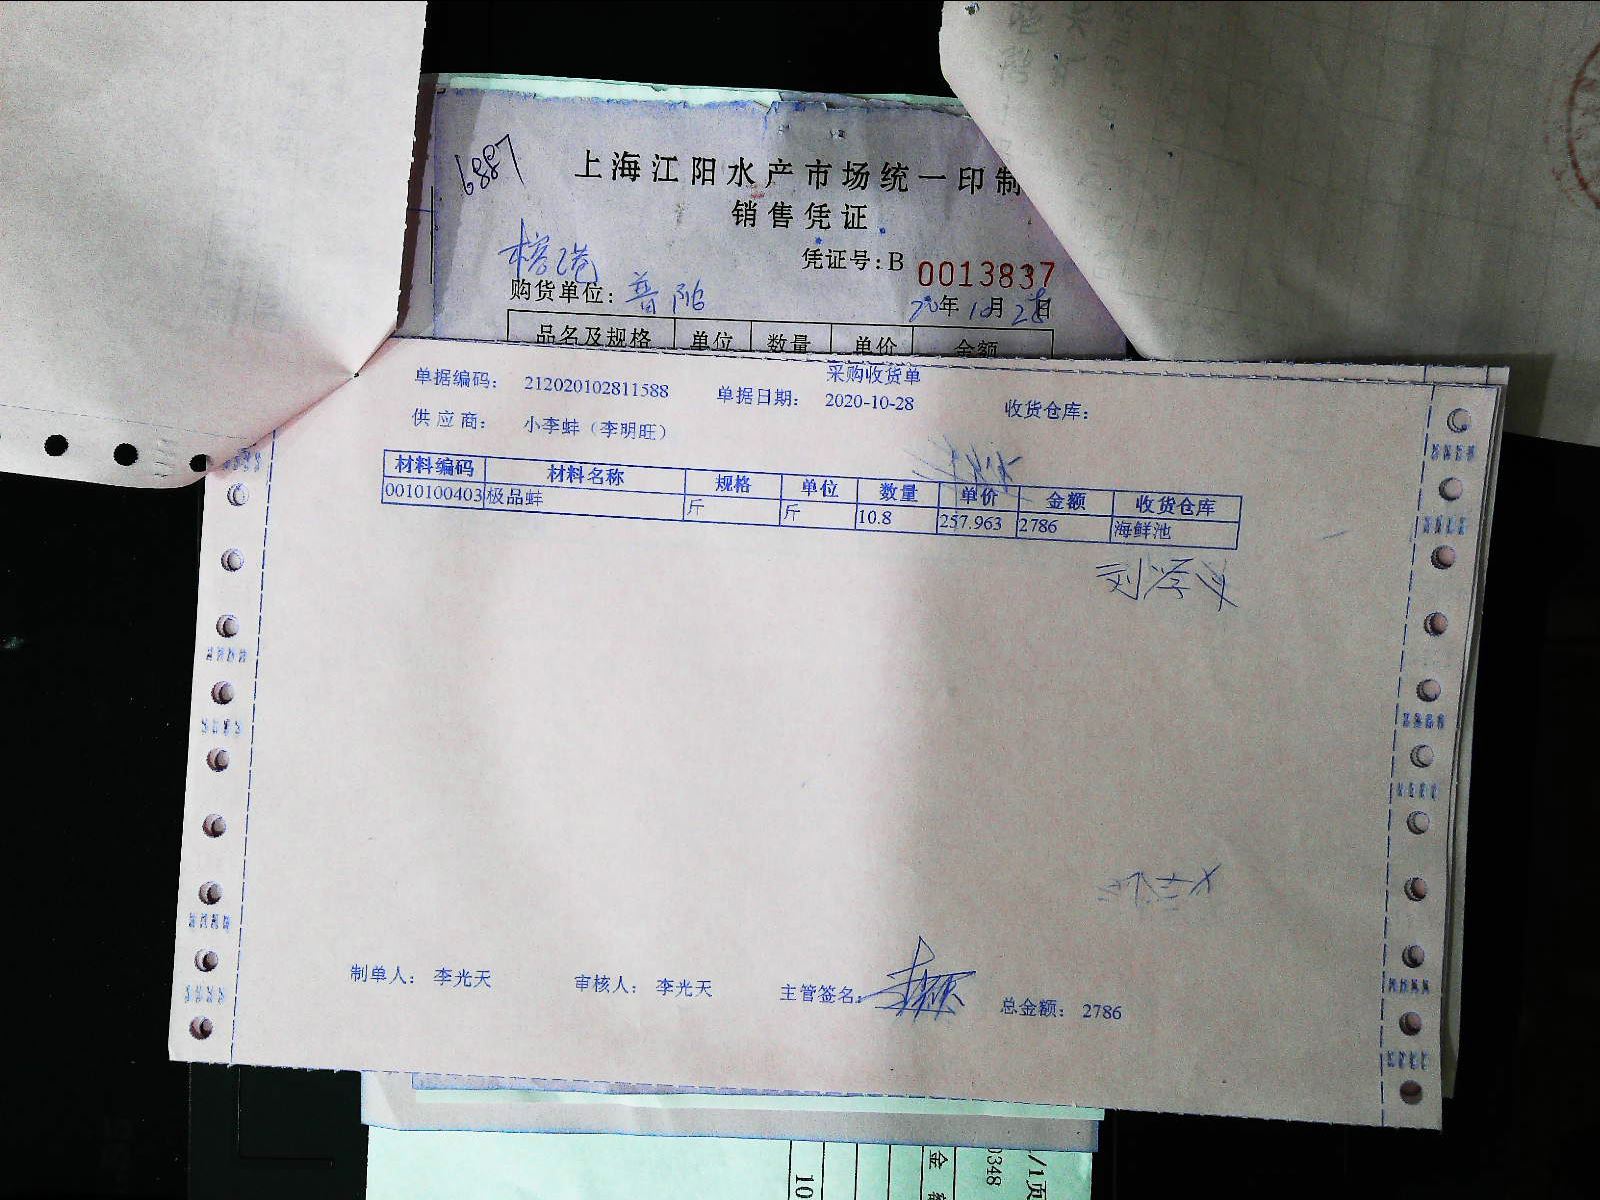 6887
上海江阳水产市场统一印制
销售凭证
凭证号:B 0013837
榕港
购货单位: 普陀 20年10月28日
品名及规格 单位 数量 单价 金额
采购收货单
单据编码: 212020102811588 单据日期: 2020-10-28 收货仓库:
供应商: 小李蚌（李明旺）
材料编码 材料名称 规格 单位 数量 单价 金额 收货仓库
0010100403 极品蚌 斤 斤 10.8 257.963 2786 海鲜池
制单人: 李光天 审核人: 李光天 主管签名: 总金额: 2786
10
金
0348
/1页